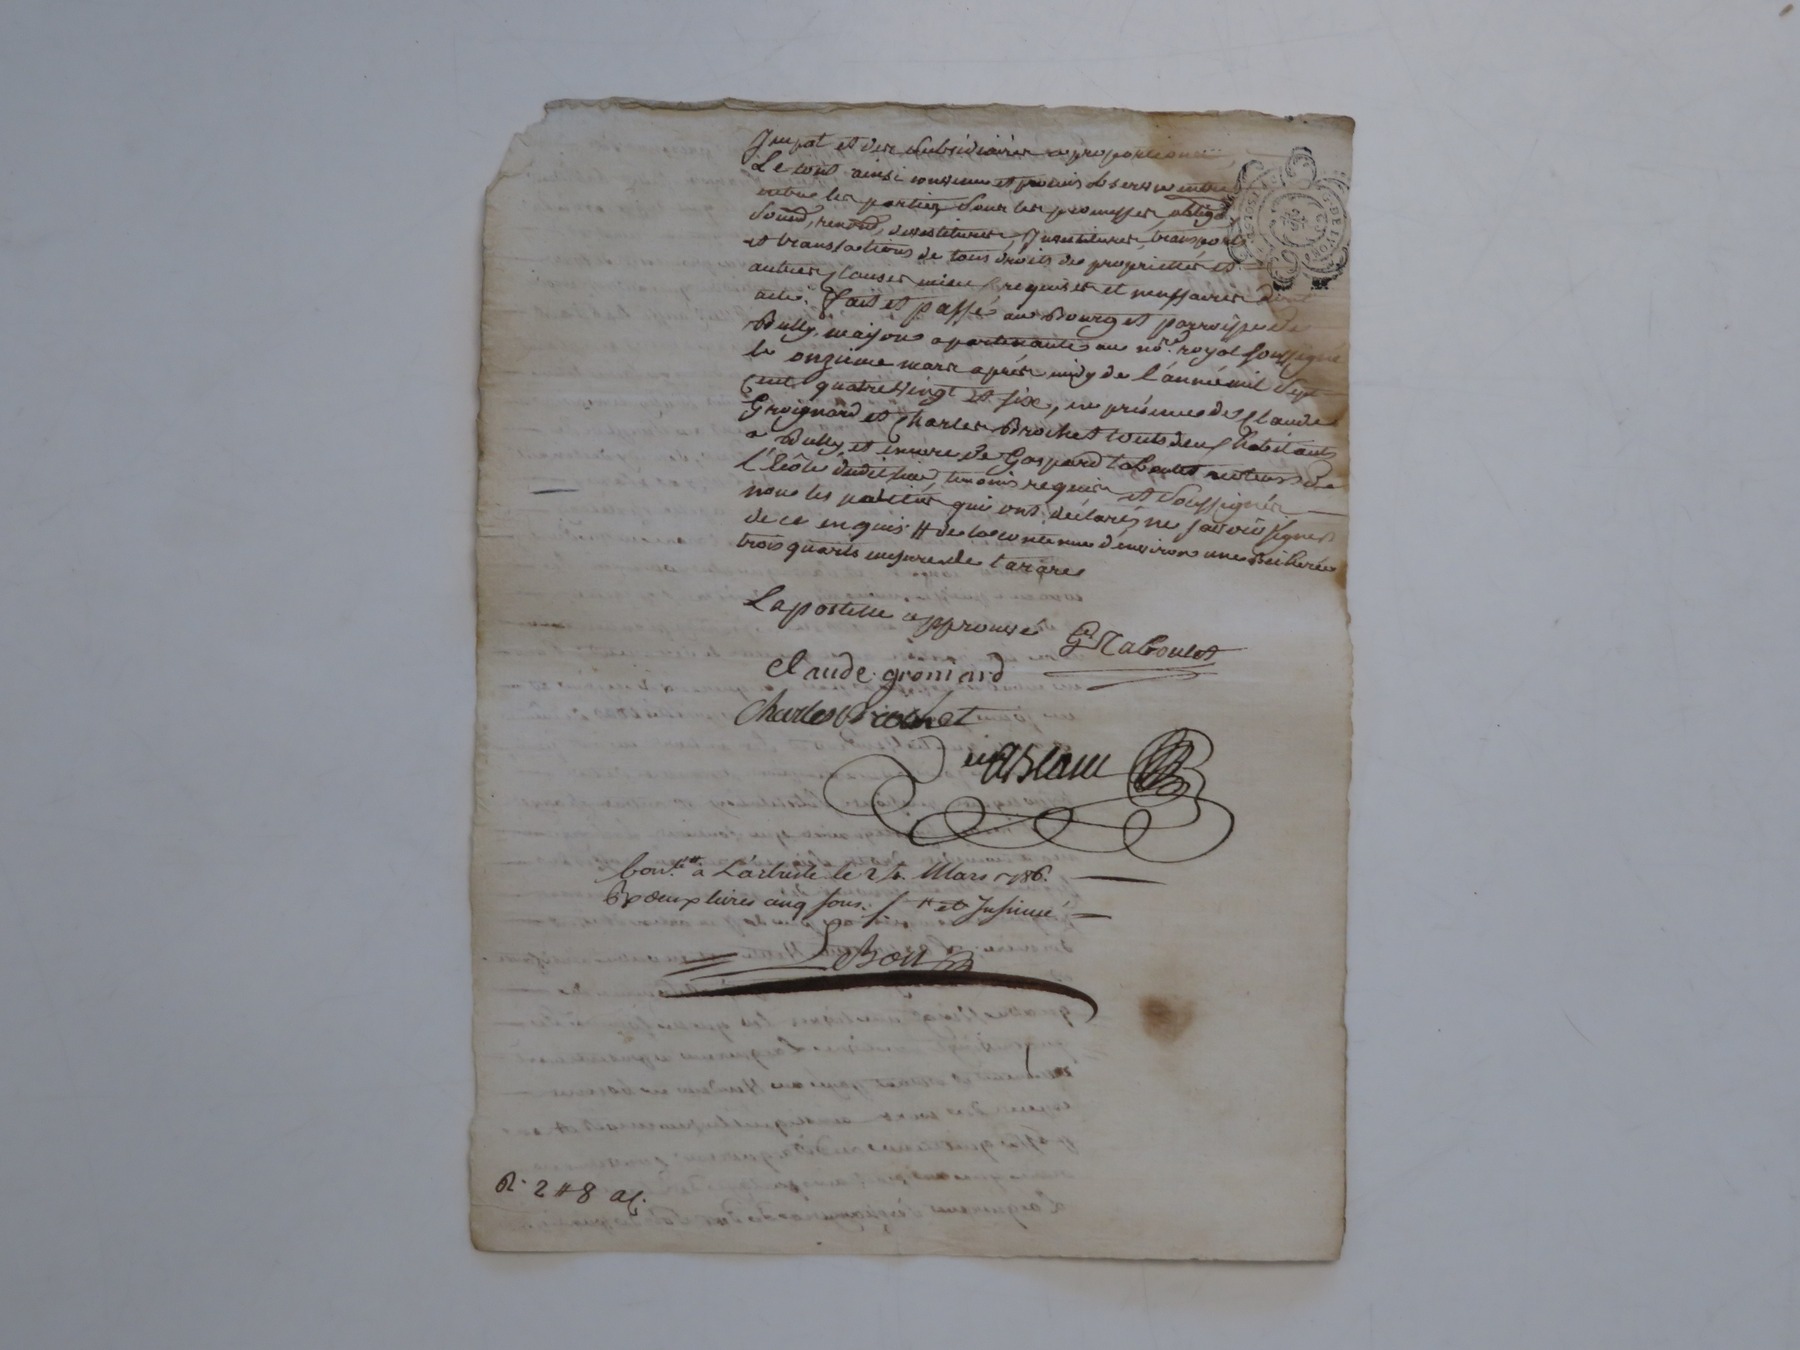 Jmpot et des subsidiaires a proportion
Le tout ainsi convenu et promis observer entre
entre les parties sous les promesses, oblig.
soumd, renond, devestitures, Jnvestitures, transports
et transactions de tous droits de proprietter et
autres clauses mieux requises et neussaires dont
acte. Fait et passé au Bourg et parroisse de
Bully, maison apartenante au no.re royal soussigné
le onzieme mars après midy de l'année mil sept
cent quatre vingt et six, en présence de Claude
Groignard et Charles Brochet touts deux habitants
a Bully, et encore de Gaspard taboulet recteur de
l'écôle dudit lieu temoins requis et soussignés
nons les parties qui ont déclarés ne savoir signer
de ce enquis # de la contenue d'environ une Bicherée
trois quarts mesure de tarare
Lapostille approuvé
G.d Taboulet
Claude groniard
Charles Brochet
Blanc
Con.lé à L'arbresle le 24 Mars 1786.
R deux livres cinq sous. et Insinué
LeBon
R. 2 # 8 a.
G. DE LYON